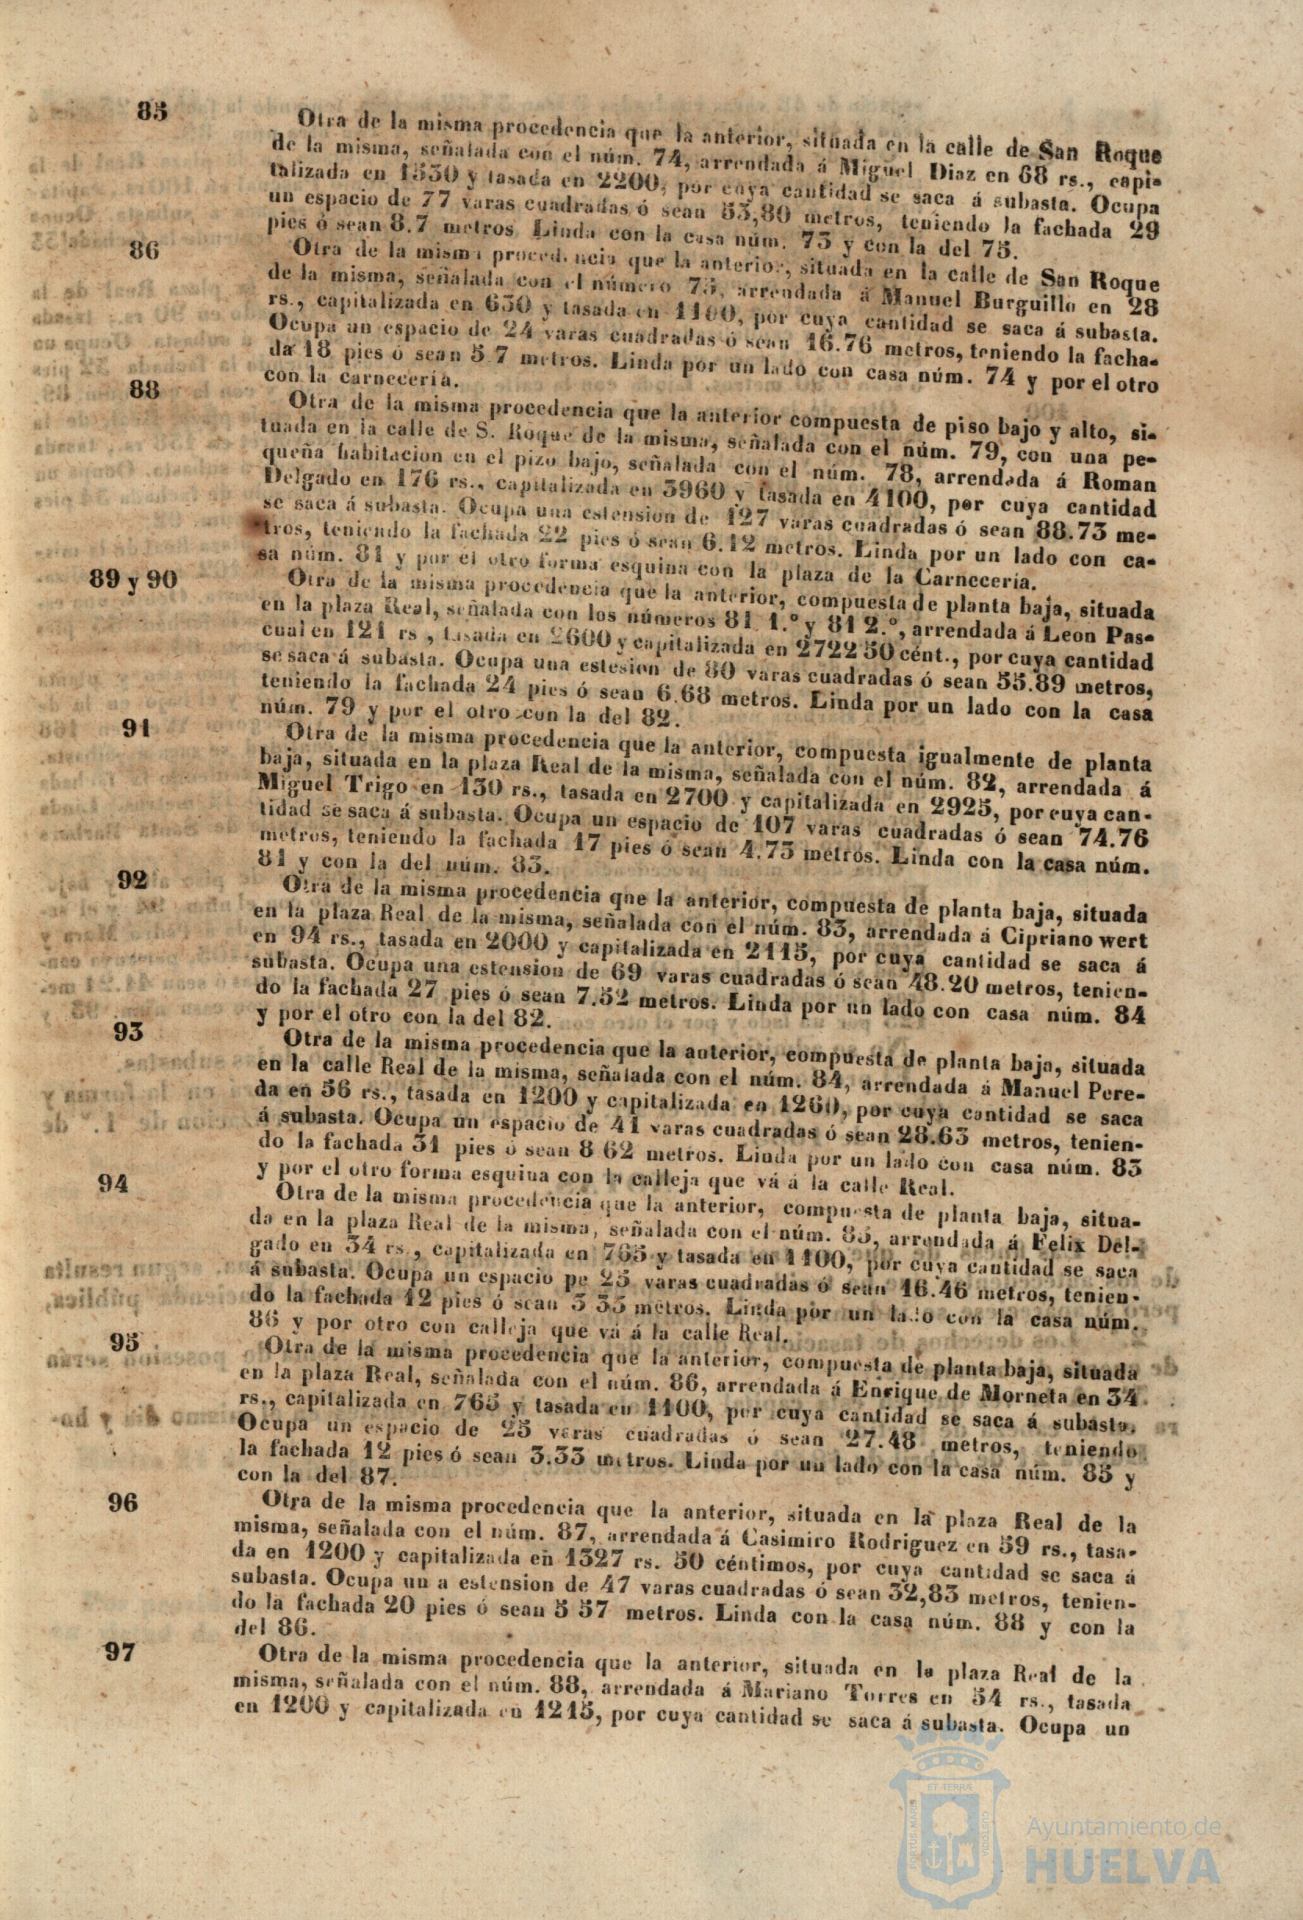 85
Otra de la misma procedencia que la anterior, situada en la calle de San Roque
de la misma, señalada con el núm. 74, arrendada á Miguel Diaz en 68 rs., capi-
talizada en 1530 y tasada en 2200, por cuya cantidad se saca á subasta. Ocupa
un espacio de 77 varas cuadradas ó sean 53,80 metros, teniendo la fachada 29
pies ó sean 8.7 metros Linda con la casa núm. 73 y con la del 75.
86
Otra de la misma procedencia que la anterior, situada en la calle de San Roque
de la misma, señalada con el número 75, arrendada á Manuel Burguillo en 28
rs., capitalizada en 630 y tasada en 1100, por cuya cantidad se saca á subasta.
Ocupa un espacio de 24 varas cuadradas ó sean 16.76 metros, teniendo la facha-
da 18 pies ó sean 5 7 metros. Linda por un lado con casa núm. 74 y por el otro
con la carnecería.
88
Otra de la misma procedencia que la anterior compuesta de piso bajo y alto, si-
tuada en la calle de S. Roque de la misma, señalada con el núm. 79, con una pe-
queña habitacion en el pizo bajo, señalada con el núm. 78, arrendada á Roman
Delgado en 176 rs., capitalizada en 3960 y tasada en 4100, por cuya cantidad
se saca á subasta. Ocupa una estension de 127 varas cuadradas ó sean 88.73 me-
tros, teniendo la fachada 22 pies ó sean 6.12 metros. Linda por un lado con ca-
sa núm. 81 y por el otro forma esquina con la plaza de la Carnecería.
89 y 90
Otra de la misma procedencia que la anterior, compuesta de planta baja, situada
en la plaza Real, señalada con los números 81 1.º y 81 2.º, arrendada á Leon Pas-
cual en 121 rs , tasada en 2600 y capitalizada en 2722 50 cént., por cuya cantidad
se saca á subasta. Ocupa una estesion de 80 varas cuadradas ó sean 55.89 metros,
teniendo la fachada 24 pies ó sean 6.68 metros. Linda por un lado con la casa
núm. 79 y por el otro con la del 82.
91
Otra de la misma procedencia que la anterior, compuesta igualmente de planta
baja, situada en la plaza Real de la misma, señalada con el núm. 82, arrendada á
Miguel Trigo en 130 rs., tasada en 2700 y capitalizada en 2925, por cuya can-
tidad se saca á subasta. Ocupa un espacio de 107 varas cuadradas ó sean 74.76
metros, teniendo la fachada 17 pies ó sean 4.73 metros. Linda con la casa núm.
81 y con la del núm. 83.
92
Otra de la misma procedencia que la anterior, compuesta de planta baja, situada
en la plaza Real de la misma, señalada con el núm. 83, arrendada á Cipriano wert
en 94 rs., tasada en 2000 y capitalizada en 2115, por cuya cantidad se saca á
subasta. Ocupa una estension de 69 varas cuadradas ó sean 48.20 metros, tenien-
do la fachada 27 pies ó sean 7.52 metros. Linda por un lado con casa núm. 84
y por el otro con la del 82.
93
Otra de la misma procedencia que la anterior, compuesta de planta baja, situada
en la calle Real de la misma, señalada con el núm. 84, arrendada á Manuel Pere-
da en 56 rs., tasada en 1200 y capitalizada en 1260, por cuya cantidad se saca
á subasta. Ocupa un espacio de 41 varas cuadradas ó sean 28.63 metros, tenien-
do la fachada 31 pies ó sean 8 62 metros. Linda por un lado con casa núm. 83
y por el otro forma esquina con la calleja que vá á la calle Real.
94
Otra de la misma procedencia que la anterior, compuesta de planta baja, situa-
da en la plaza Real de la misma, señalada con el núm. 85, arrendada á Felix Del-
gado en 34 rs., capitalizada en 765 y tasada en 1100, por cuya cantidad se saca
á subasta. Ocupa un espacio pe 25 varas cuadradas ó sean 16.46 metros, tenien-
do la fachada 12 pies ó sean 3 33 metros. Linda por un lado con la casa núm.
86 y por otro con calleja que vá á la calle Real.
95
Otra de la misma procedencia que la anterior, compuesta de planta baja, situada
en la plaza Real, señalada con el núm. 86, arrendada á Enrique de Morneta en 34
rs., capitalizada en 765 y tasada en 1100, por cuya cantidad se saca á subasta.
Ocupa un espacio de 25 varas cuadradas ó sean 27.48 metros, teniendo
la fachada 12 pies ó sean 3.33 metros. Linda por un lado con la casa núm. 85 y
con la del 87.
96
Otra de la misma procedencia que la anterior, situada en la plaza Real de la
misma, señalada con el núm. 87, arrendada á Casimiro Rodriguez en 59 rs., tasa-
da en 1200 y capitalizada en 1327 rs. 50 céntimos, por cuya cantidad se saca á
subasta. Ocupa un a estension de 47 varas cuadradas ó sean 32,83 metros, tenien-
do la fachada 20 pies ó sean 5 57 metros. Linda con la casa núm. 88 y con la
del 86.
97
Otra de la misma procedencia que la anterior, situada en la plaza Real de la
misma, señalada con el núm. 88, arrendada á Mariano Torres en 54 rs., tasada
en 1200 y capitalizada en 1215, por cuya cantidad se saca á subasta. Ocupa un
ET TERRÆ
PORTUS MARIS
CUSTODIA
Ayuntamiento de
HUELVA